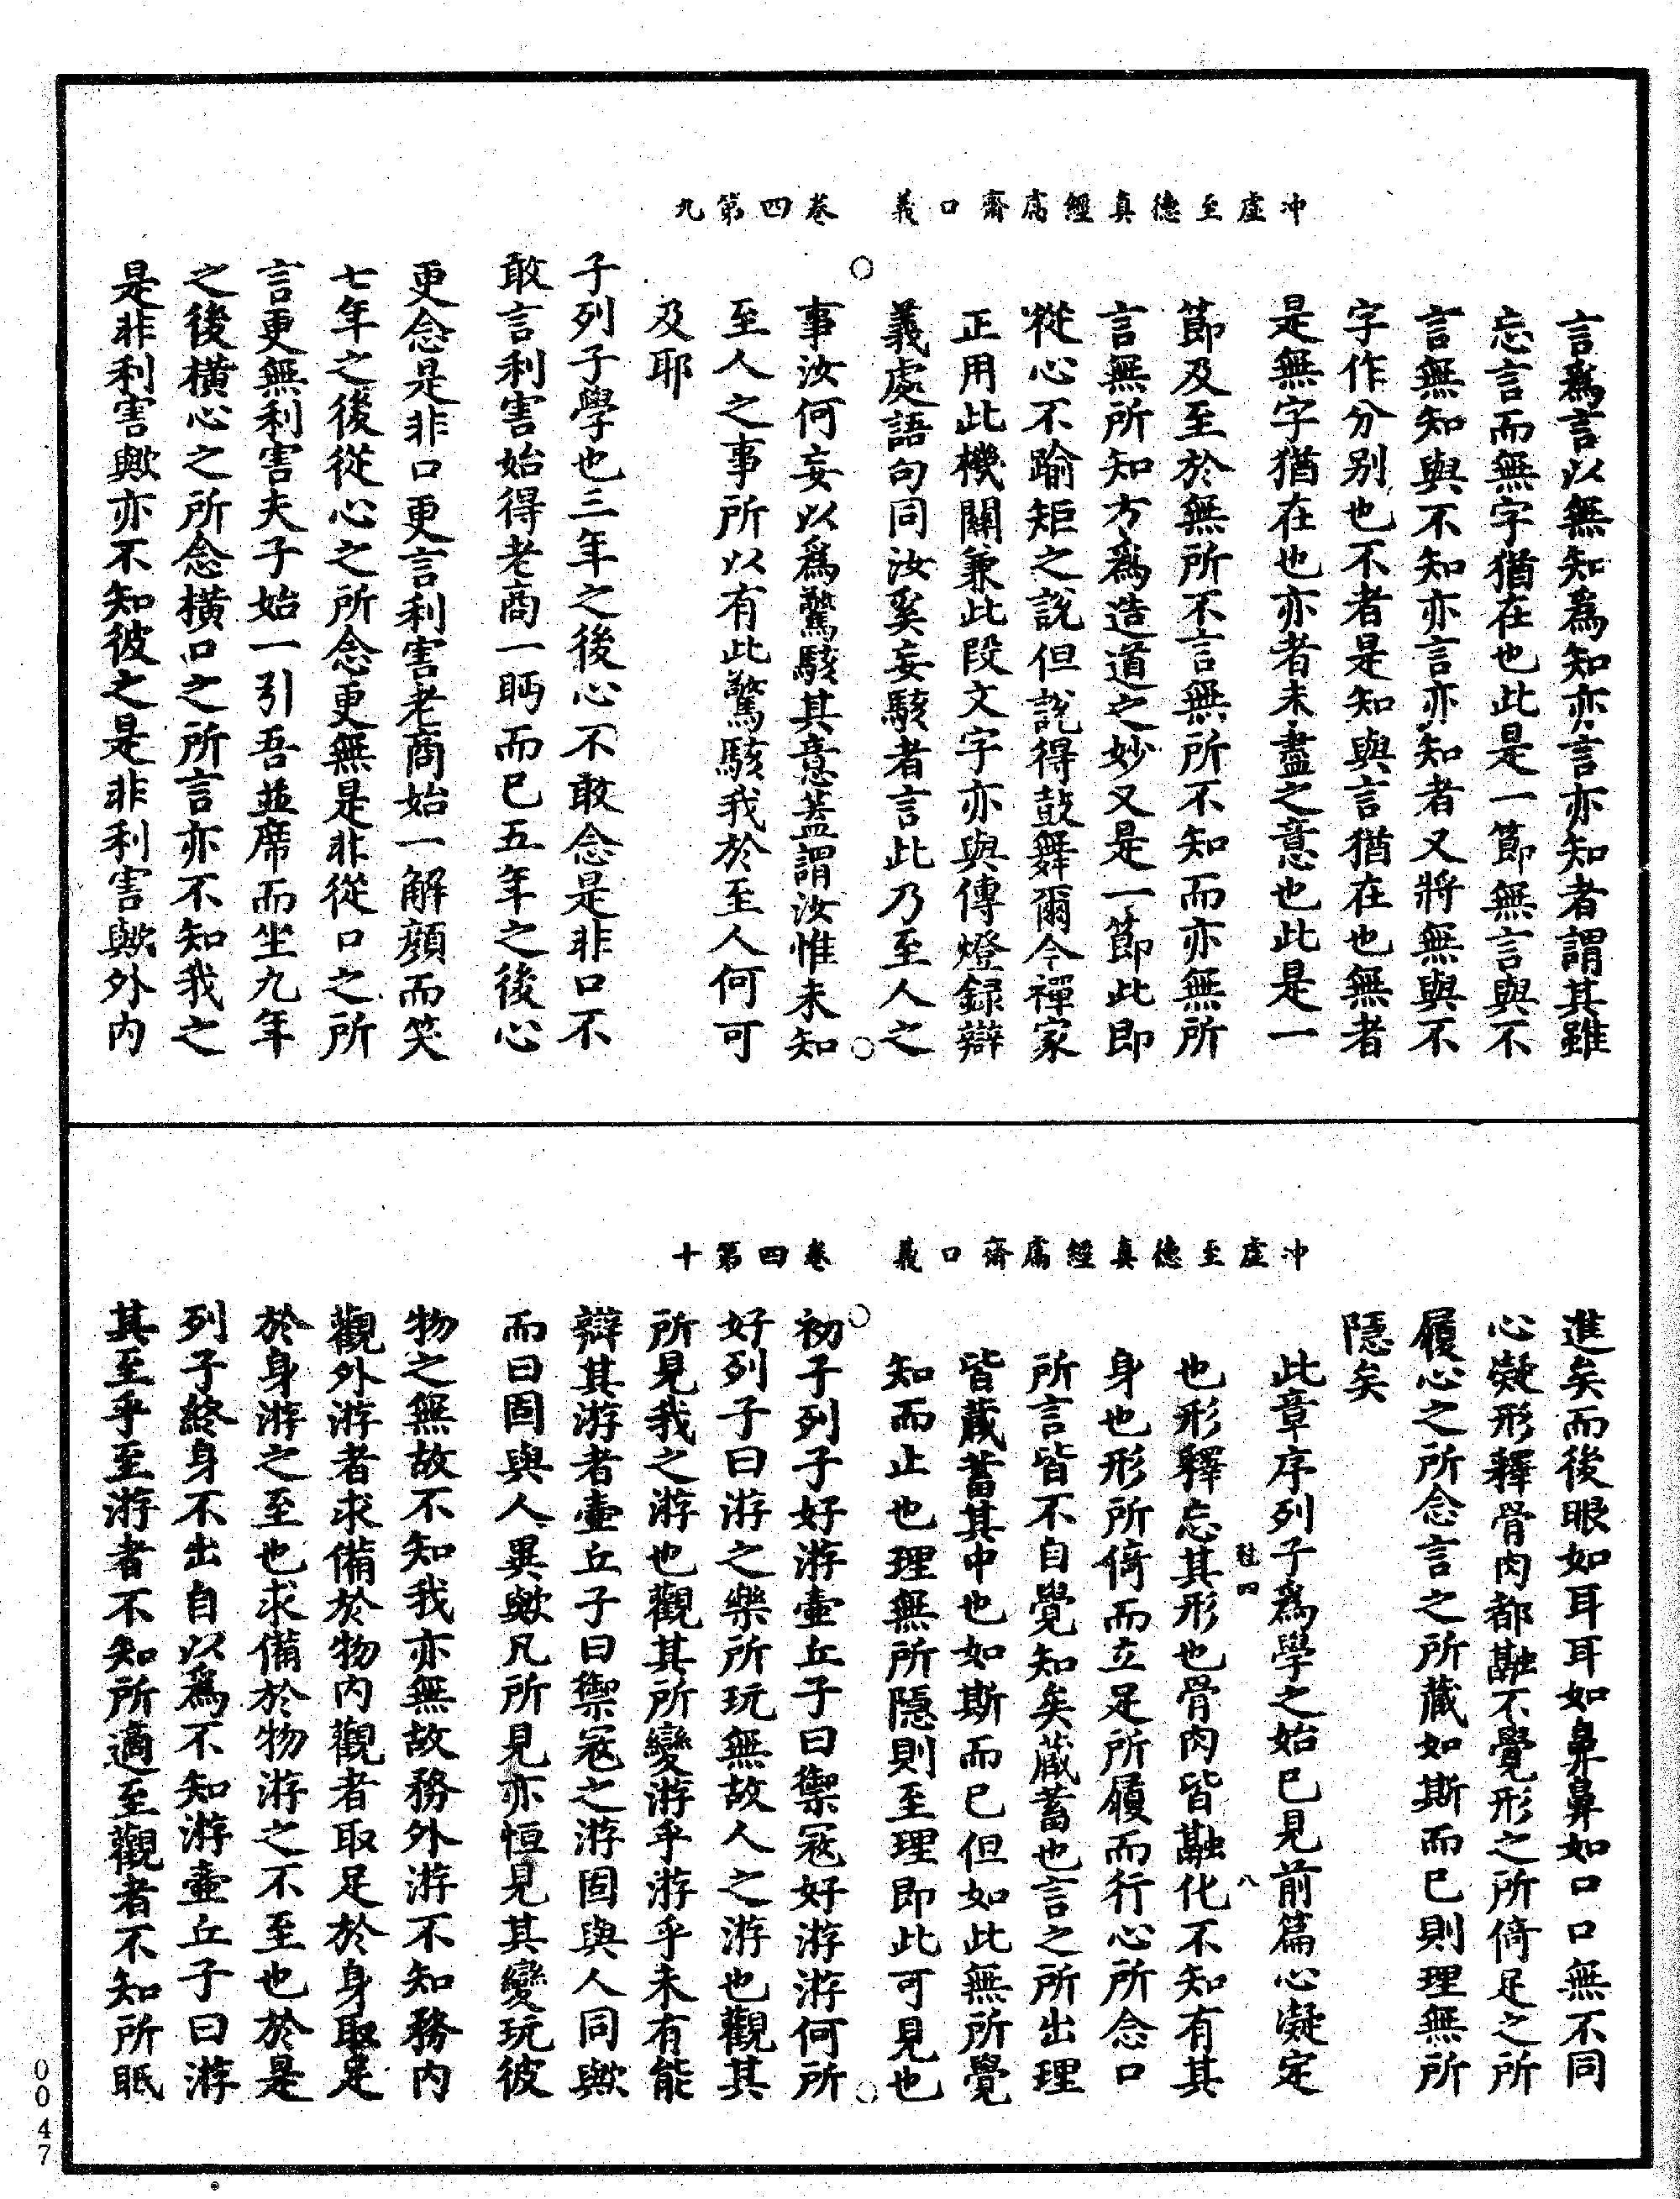 冲虛至德真經鬳齋口義　卷四第九
言爲言以無知爲知亦言亦知者謂其雖
忘言而無字猶在也此是一節無言與不
言無知與不知亦言亦知者又將無與不
字作分别也不者是知與言猶在也無者
是無字猶在也亦者未盡之意也此是一
節及至於無所不言無所不知而亦無所
言無所知方爲造道之妙又是一節此即
從心不踰矩之說但說得鼓舞爾今禪家
正用此機關兼此段文字亦與傳燈録辯
義處語句同汝奚妄駭者言此乃至人之
事汝何妄以爲驚駭其意蓋謂汝惟未知
至人之事所以有此驚駭我於至人何可
及耶
子列子學也三年之後心不敢念是非口不
敢言利害始得老商一眄而已五年之後心
更念是非口更言利害老商始一解顔而笑
七年之後從心之所念更無是非從口之所
言更無利害夫子始一引吾並席而坐九年
之後橫心之所念橫口之所言亦不知我之
是非利害歟亦不知彼之是非利害歟外内
冲虛至德真經鬳齋口義　卷四第十
進矣而後眼如耳耳如鼻鼻如口口無不同
心凝形釋骨肉都融不覺形之所倚足之所
履心之所念言之所藏如斯而已則理無所
隱矣
此章序列子爲學之始已見前篇心凝定
四　八
也形釋忘其形也骨肉皆融化不知有其
身也形所倚而立足所履而行心所念口
所言皆不自覺知矣藏蓄也言之所出理
皆藏蓄其中也如斯而已但如此無所覺
知而止也理無所隱則至理即此可見也
初子列子好游壺丘子曰禦寇好游游何所
好列子曰游之樂所玩無故人之游也觀其
所見我之游也觀其所變游乎游乎未有能
辯其游者壺丘子曰禦寇之游固與人同歟
而曰固與人異歟凡所見亦恒見其變玩彼
物之無故不知我亦無故務外游不知務内
觀外游者求備於物内觀者取足於身取足
於身游之至也求備於物游之不至也於是
列子終身不出自以爲不知游壺丘子曰游
其至乎至游者不知所適至觀者不知所眂
0047